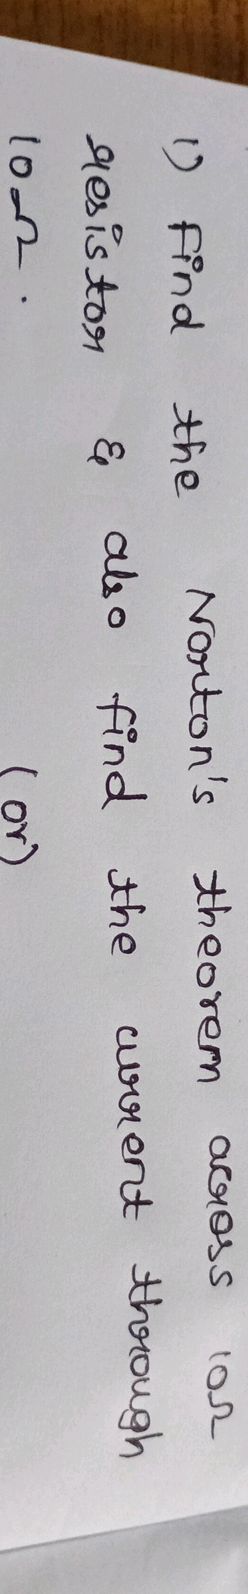 1) Find the Norton's theorem across 10Ω
resistor & also find the current through
10Ω.
(or)